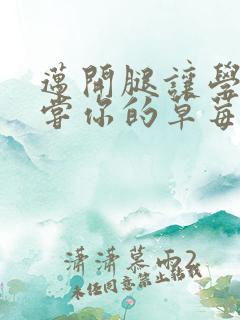 邁開腿讓學
嘗你的草莓
瀟瀟慕雨2
未经同意禁止转载